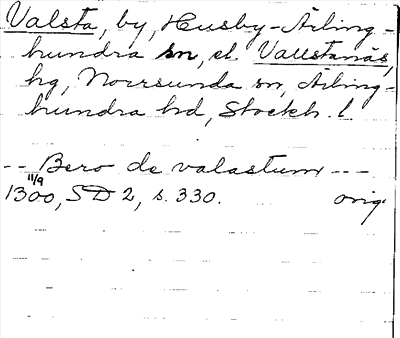 Valsta, by, Husby-Ärling-
hundra sn, el. Vallstanäs,
hg, Norrsunda sn, Ärling-
hundra hd, Stockh. l
-- Bero de valastum ---
1300, SD 2, s. 330. orig.
11/9